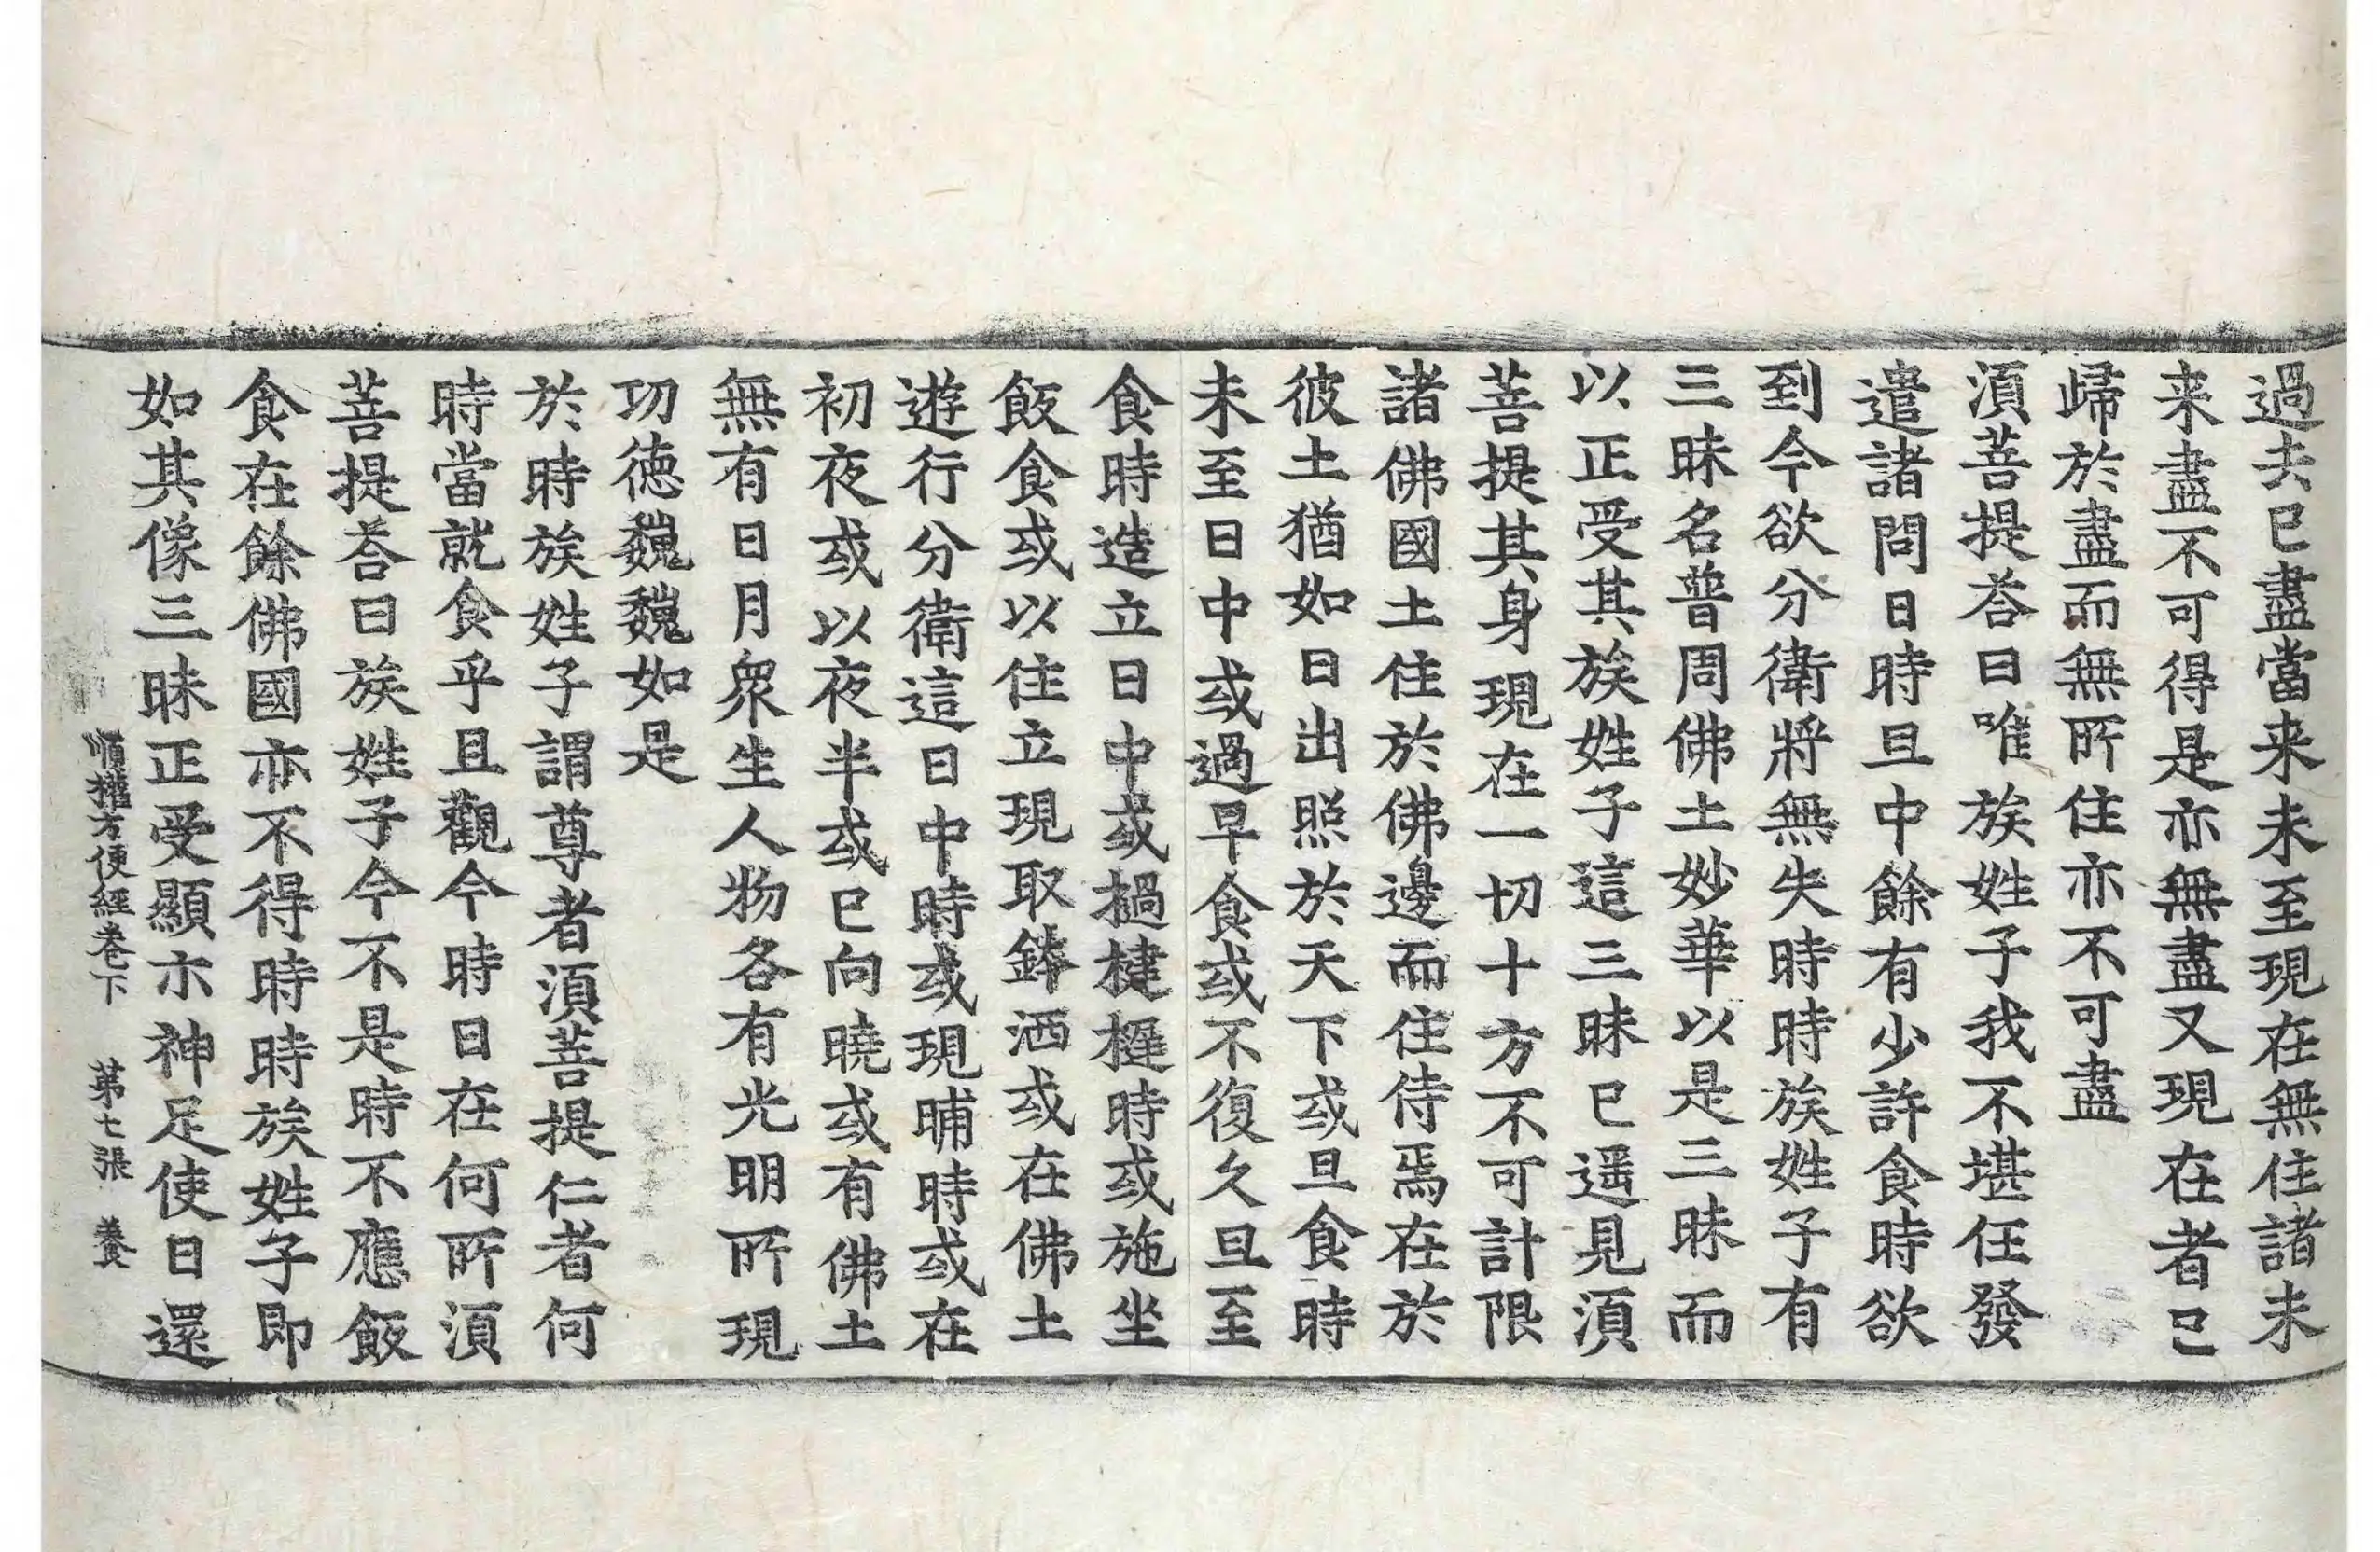 過去已盡當来未至現在無住諸未
来盡不可得是亦無盡又現在者已
歸於盡而無所住亦不可盡
湏菩提荅曰唯族姓子我不堪任發
遣諸問日時旦中餘有少許食時欲
到今欲分衛將無失時時族姓子有
三昧名普周佛土妙華以是三昧而
以正受其族姓子這三昧已遥見湏
菩提其身現在一切十方不可計限
諸佛國土住於佛邊而住侍焉在於
彼土猶如日出照於天下或旦食時
未至日中或過早食或不復久旦至
食時造立日中或撾揵槌時或施坐
飯食或以住立現取鉢洒或在佛土
遊行分衛這日中時或現晡時或在
初夜或以夜半或已向曉或有佛土
無有日月衆生人物各有光明所現
功徳巍巍如是
於時族姓子謂尊者湏菩提仁者何
時當就食乎且觀今時日在何所湏
菩提荅曰族姓子今不是時不應飯
食在餘佛國亦不得時時族姓子即
如其像三昧正受顯示神足使日還
順權方便經卷下 第七張 養